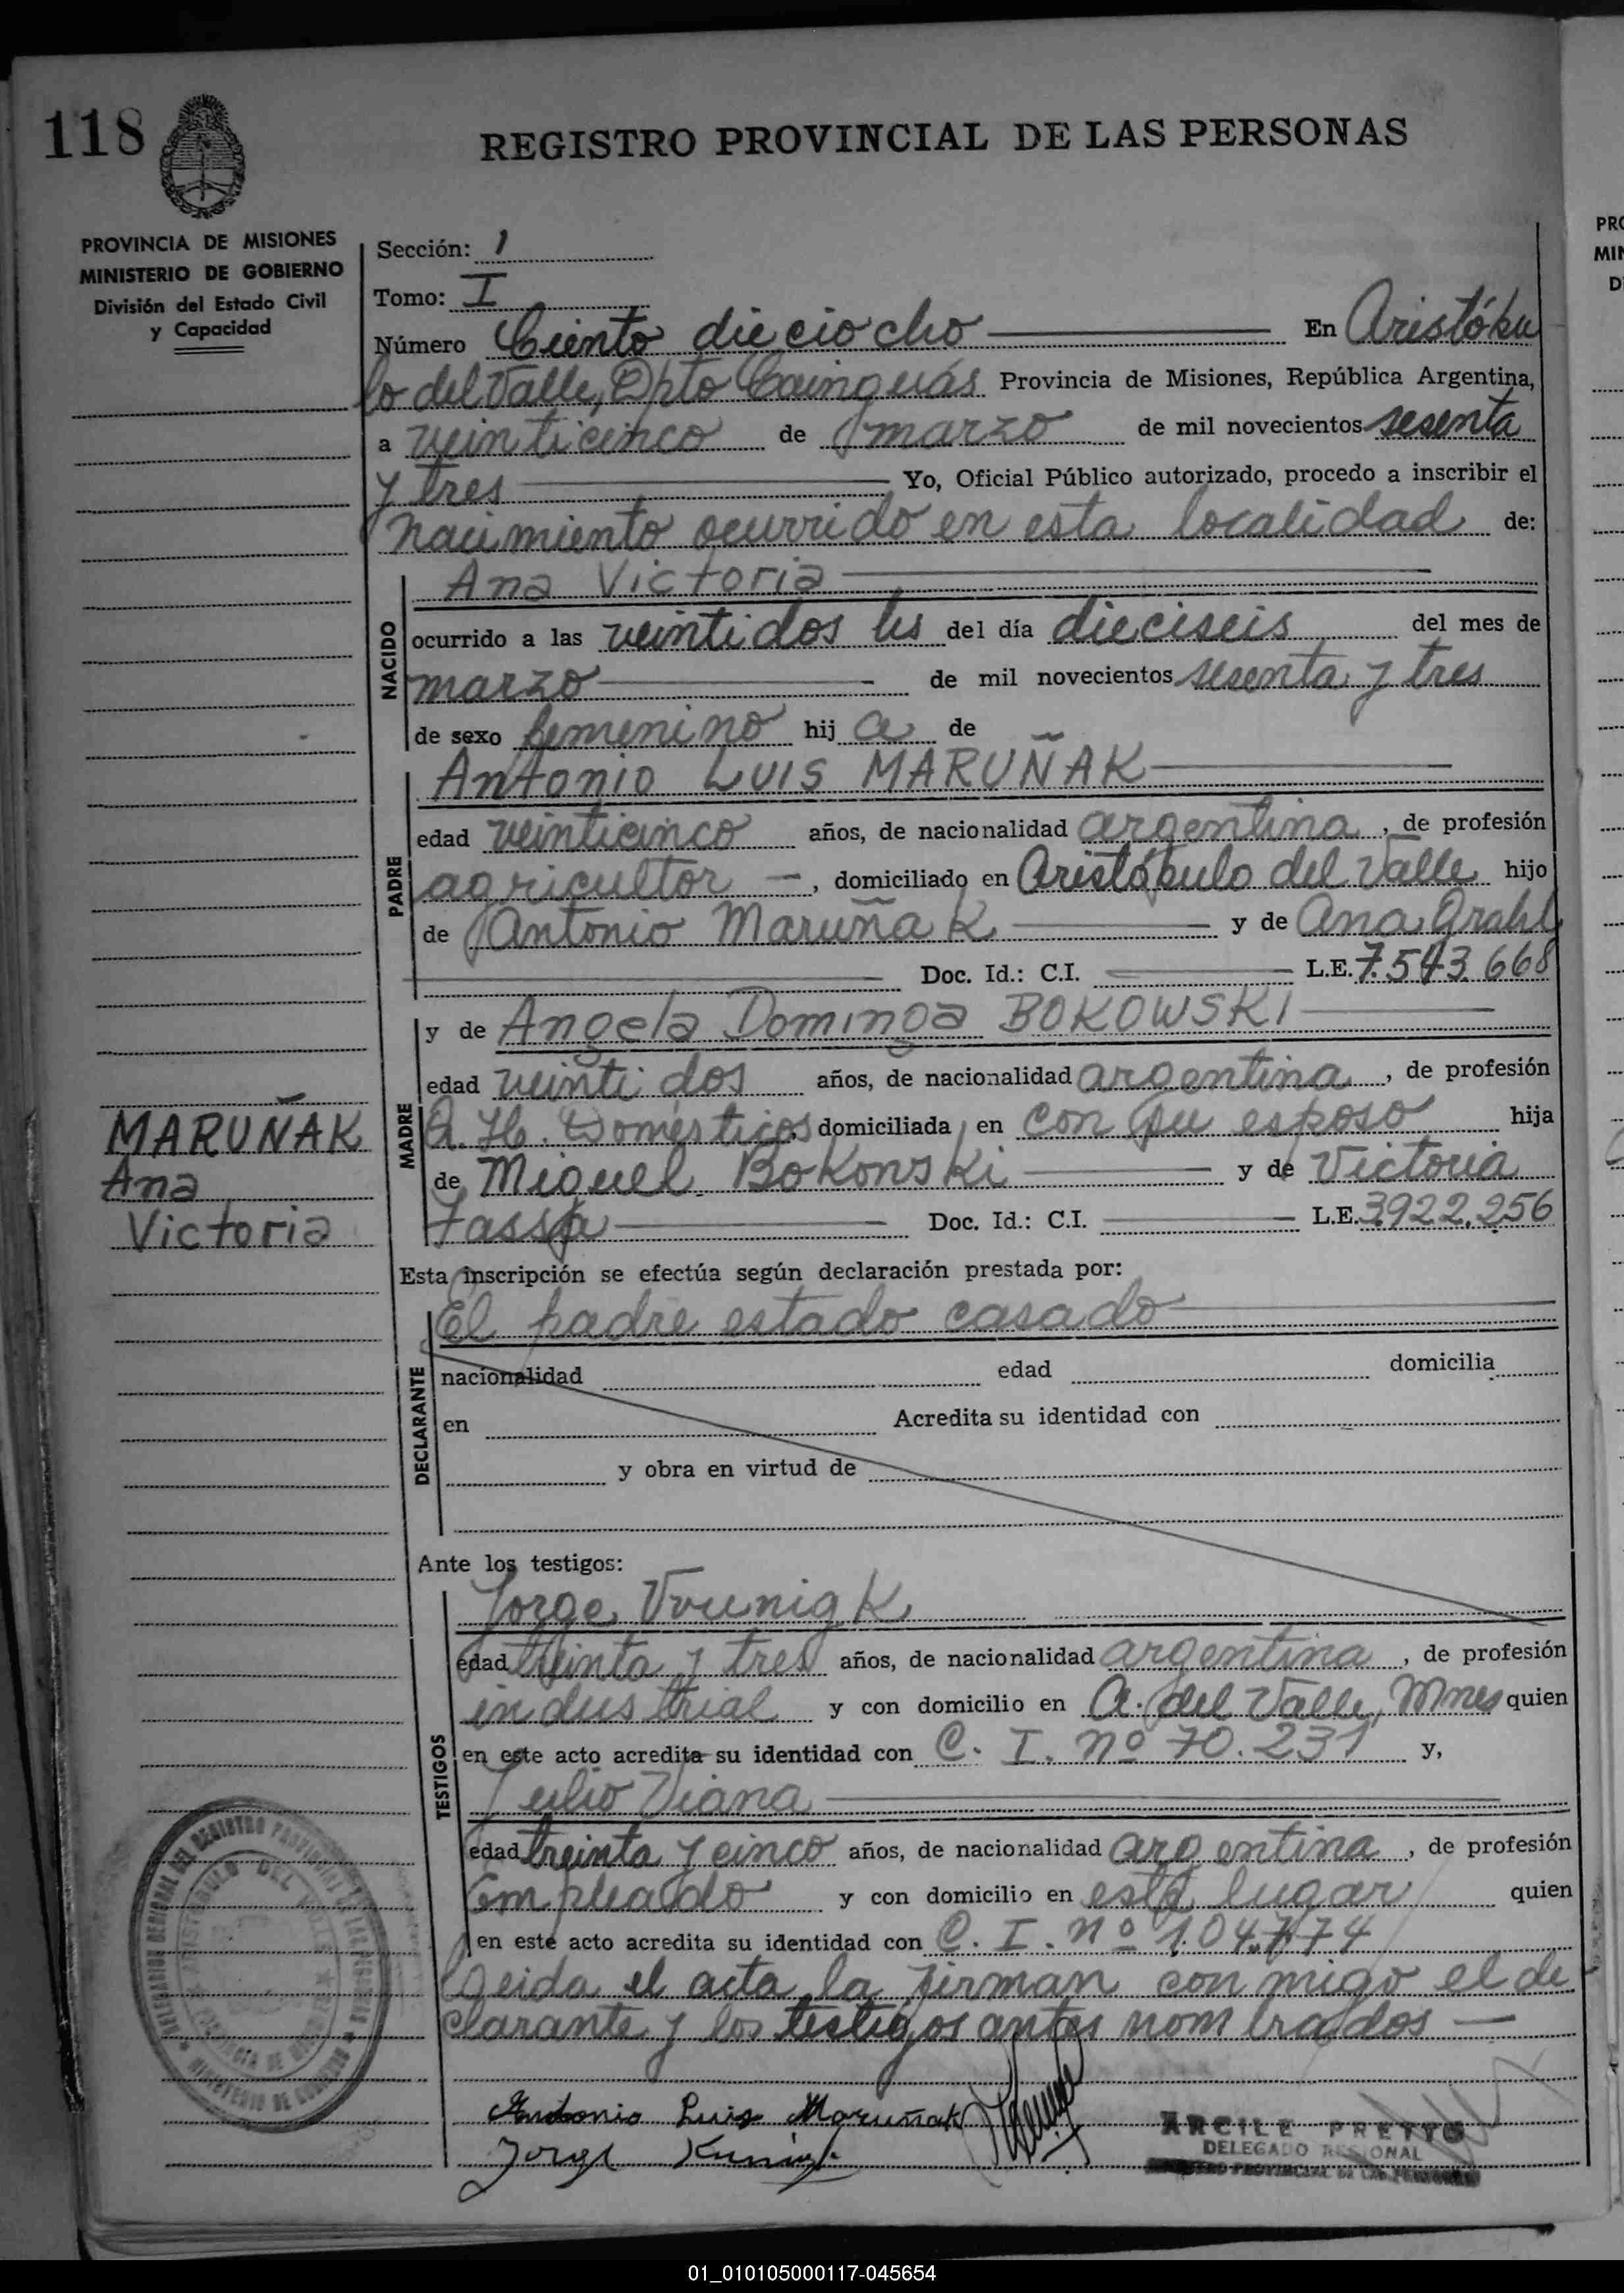 118
REGISTRO PROVINCIAL DE LAS PERSONAS
PROVINCIA DE MISIONES
MINISTERIO DE GOBIERNO
División del Estado Civil
y Capacidad
Sección: 1
Tomo: I
Número Ciento dieciocho En Aristóbu
lo del Valle, Dpto Cainguás Provincia de Misiones, República Argentina,
a veinticinco de marzo de mil novecientos sesenta
y tres Yo, Oficial Público autorizado, procedo a inscribir el
nacimiento ocurrido en esta localidad de:
NACIDO
Ana Victoria
ocurrido a las veintidos hs del día dieciseis del mes de
marzo de mil novecientos sesenta y tres
de sexo femenino hij a de
PADRE
Antonio LUIS MARUÑAK
edad veinticinco años, de nacionalidad argentina, de profesión
agricultor —, domiciliado en Aristóbulo del Valle hijo
de Antonio Maruñak y de Ana Grahl
Doc. Id.: C.I. L.E. 7.543.668
MADRE
y de Angela Dominga BOKOWSKI
edad veintidos años, de nacionalidad argentina, de profesión
Q. H. Domésticos, domiciliada en con su esposo hija
de Miguel Bokonski y de Victoria
Doc. Id.: C.I. L.E. 3.922.256
MARUÑAK
Ana
Victoria
Esta inscripción se efectúa según declaración prestada por:
DECLARANTE
El padre estado casado
nacionalidad edad domicilia
en Acredita su identidad con
y obra en virtud de
Ante los testigos:
TESTIGOS
Jorge
edad treinta y tres años, de nacionalidad argentina, de profesión
industrial y con domicilio en A. del Valle, Mnes quien
en este acto acredita su identidad con C. I. nº 70.231 y,
Julio Viana
edad treinta y cinco años, de nacionalidad argentina, de profesión
Empleado y con domicilio en este lugar quien
en este acto acredita su identidad con C. I. nº 104.774
Leida el acta la firman con migo el de
clarante y los testigos antes nombrados —
Antonio Luis Maruñak
Jorge
ARCILE PRETTO
DELEGADO REGIONAL
REGISTRO PROVINCIAL DE LAS PERSONAS
01_010105000117-045654